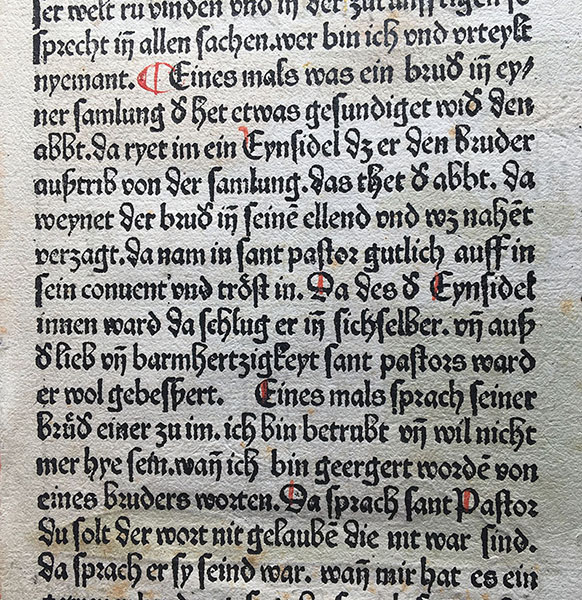 ser welt ru vinden vnd in der zukunfftigen so
sprecht in̄ allen sachen.wer bin ich vnd vrteylt
nyemant. ¶ Eines mals was ein brud̕ in̄ ey⸗
ner samlung d̕ het etwas gesundiget wid̕ den
abbt.da ryet im ein Eynsidel dz er den bruder
außtrib von der samlung.das thet d̕ abbt. da
weynet der brud̕ in̄ seinē ellend vnd wz nahēt
verzagt.da nam in sant pastor gutlich auff in
sein conuent vnd tröst in. Da des d̕ Eynsidel
innen ward da schlug er in̄ sichselber. vn̄ auß
d̕ lieb vn̄ barmhertzigkeyt sant pastors ward
er wol gebessert. Eines mals sprach seiner
brüd̕ einer zu im. ich bin betrubt vn̄ wil nicht
mer hye sein.wan̄ ich bin geergert wordē von
eines bruders worten. Da sprach sant Pastor
du solt der wort nit gelaubē die nit war sind.
da sprach er sy seind war. wan̄ mir hat es ein